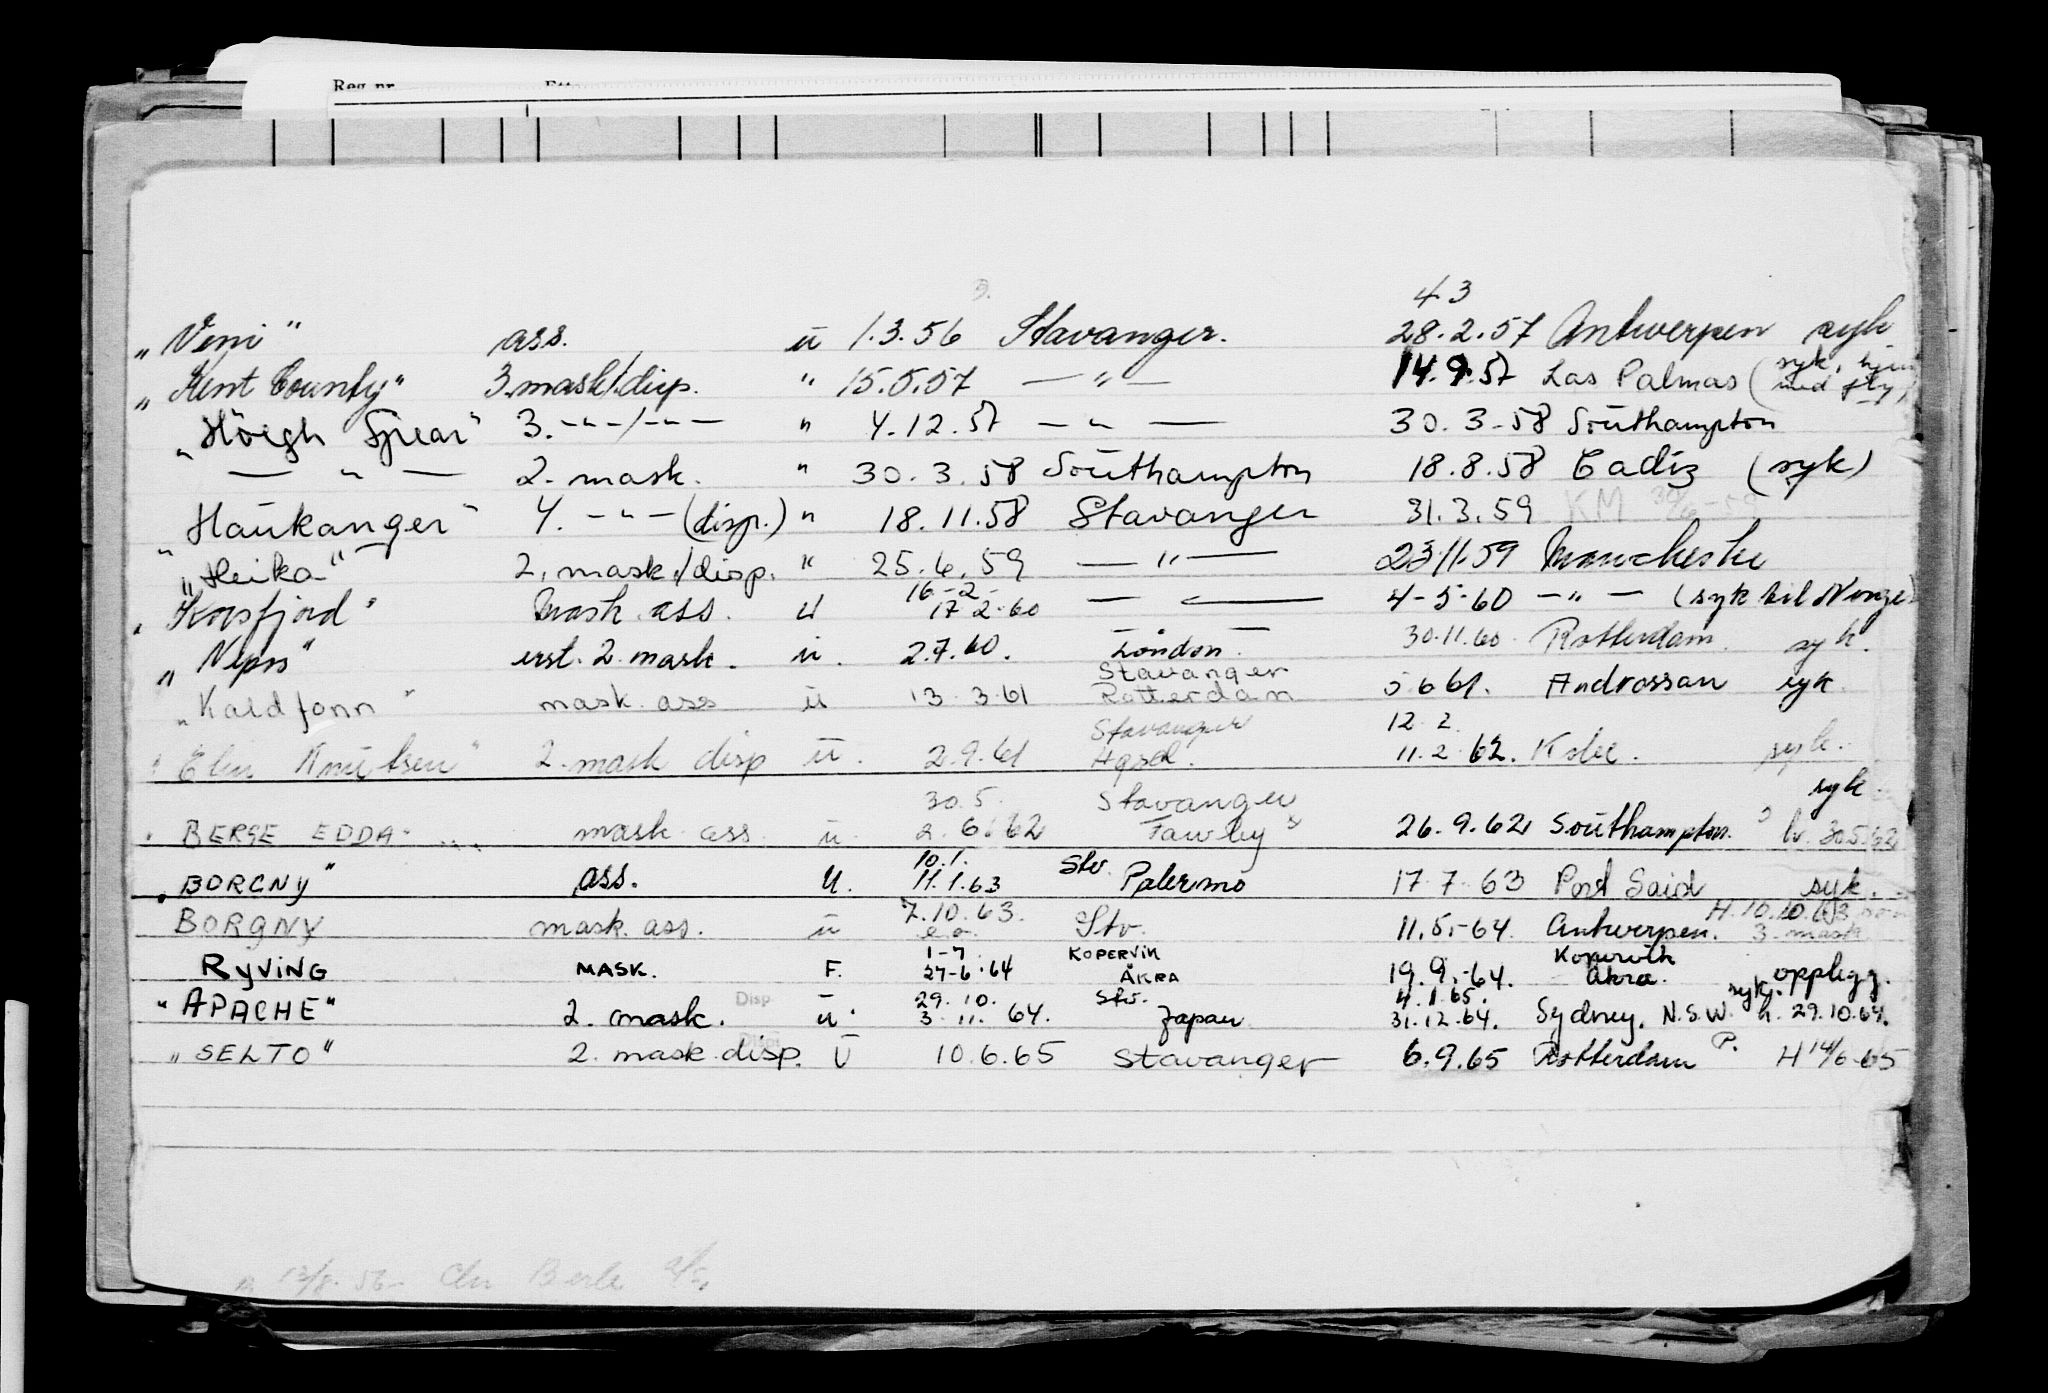 Reg.nr.
4.3
„Veni" ass. ü 1.3.56 Stavanger. 28.2.57 Antwerpen syk
„Kent County" 3.mask/disp. " 15.5.57 — " — 14.9.57 Las Palmas (syk, hjem med fly)
„Höegh Spear" 3. -"-/-"- " 4.12.57 — " — 30.3-58 Southampton
— " — 2. mask. " 30.3.58 Southampton 18.8.58 Cadiz (syk)
„Haukanger" 4. -"- (disp.) " 18.11.58 Stavanger 31.3.59 KM
„Heika" 2. mask./disp. " 25.6.59 — " — 23.11.59 Manchester
16-2-
„Korsfjord" Mask. ass. u 17-2-60 — " — 4-5-60 — " — (syk til Norge)
„Nyhorn" 2. mask. ü. 2.7.60. London. 30.11.60. Rotterdam. syk.
Stavanger
„Kaldfonn" mask. ass ü 13.3.61 Rotterdam 5.6.61. Androssan syk.
Stavanger 12.2.
"Elin Knutsen" 2. mask disp ü. 2.9.61 11.2.62. Kobe. syk.
30.5. Stavanger syk.
"BERGE EDDA" mask. ass. ü. 2.6.62 Fawley 26.9.62 Southampton. 30.5.62
10.1. Stv.
„BORGNY" ass. U. 11.1.63 Palermo 17.7.63 Port Said syk.
BORGNY mask. ass. ü 7.10.63. Stv. 11.5.-64. Antwerpen. H.10.10.63 3. mask
1-7 KOPERVIK Kopervik
RYVING MASK. F. 27-6-64 ÅKRA 19.9.-64. Åkra. opplegg.
Disp 29.10. Stv. 4.1.65. syk.
"APACHE" 2. mask. ü. 3.11.64. Japan 31.12.64. Sydney. N.S.W. h. 29.10.64.
„SELTO" 2. mask. disp. Ü 10.6.65 Stavanger 6.9.65 Rotterdam P. H 14/6-65
13/8.56